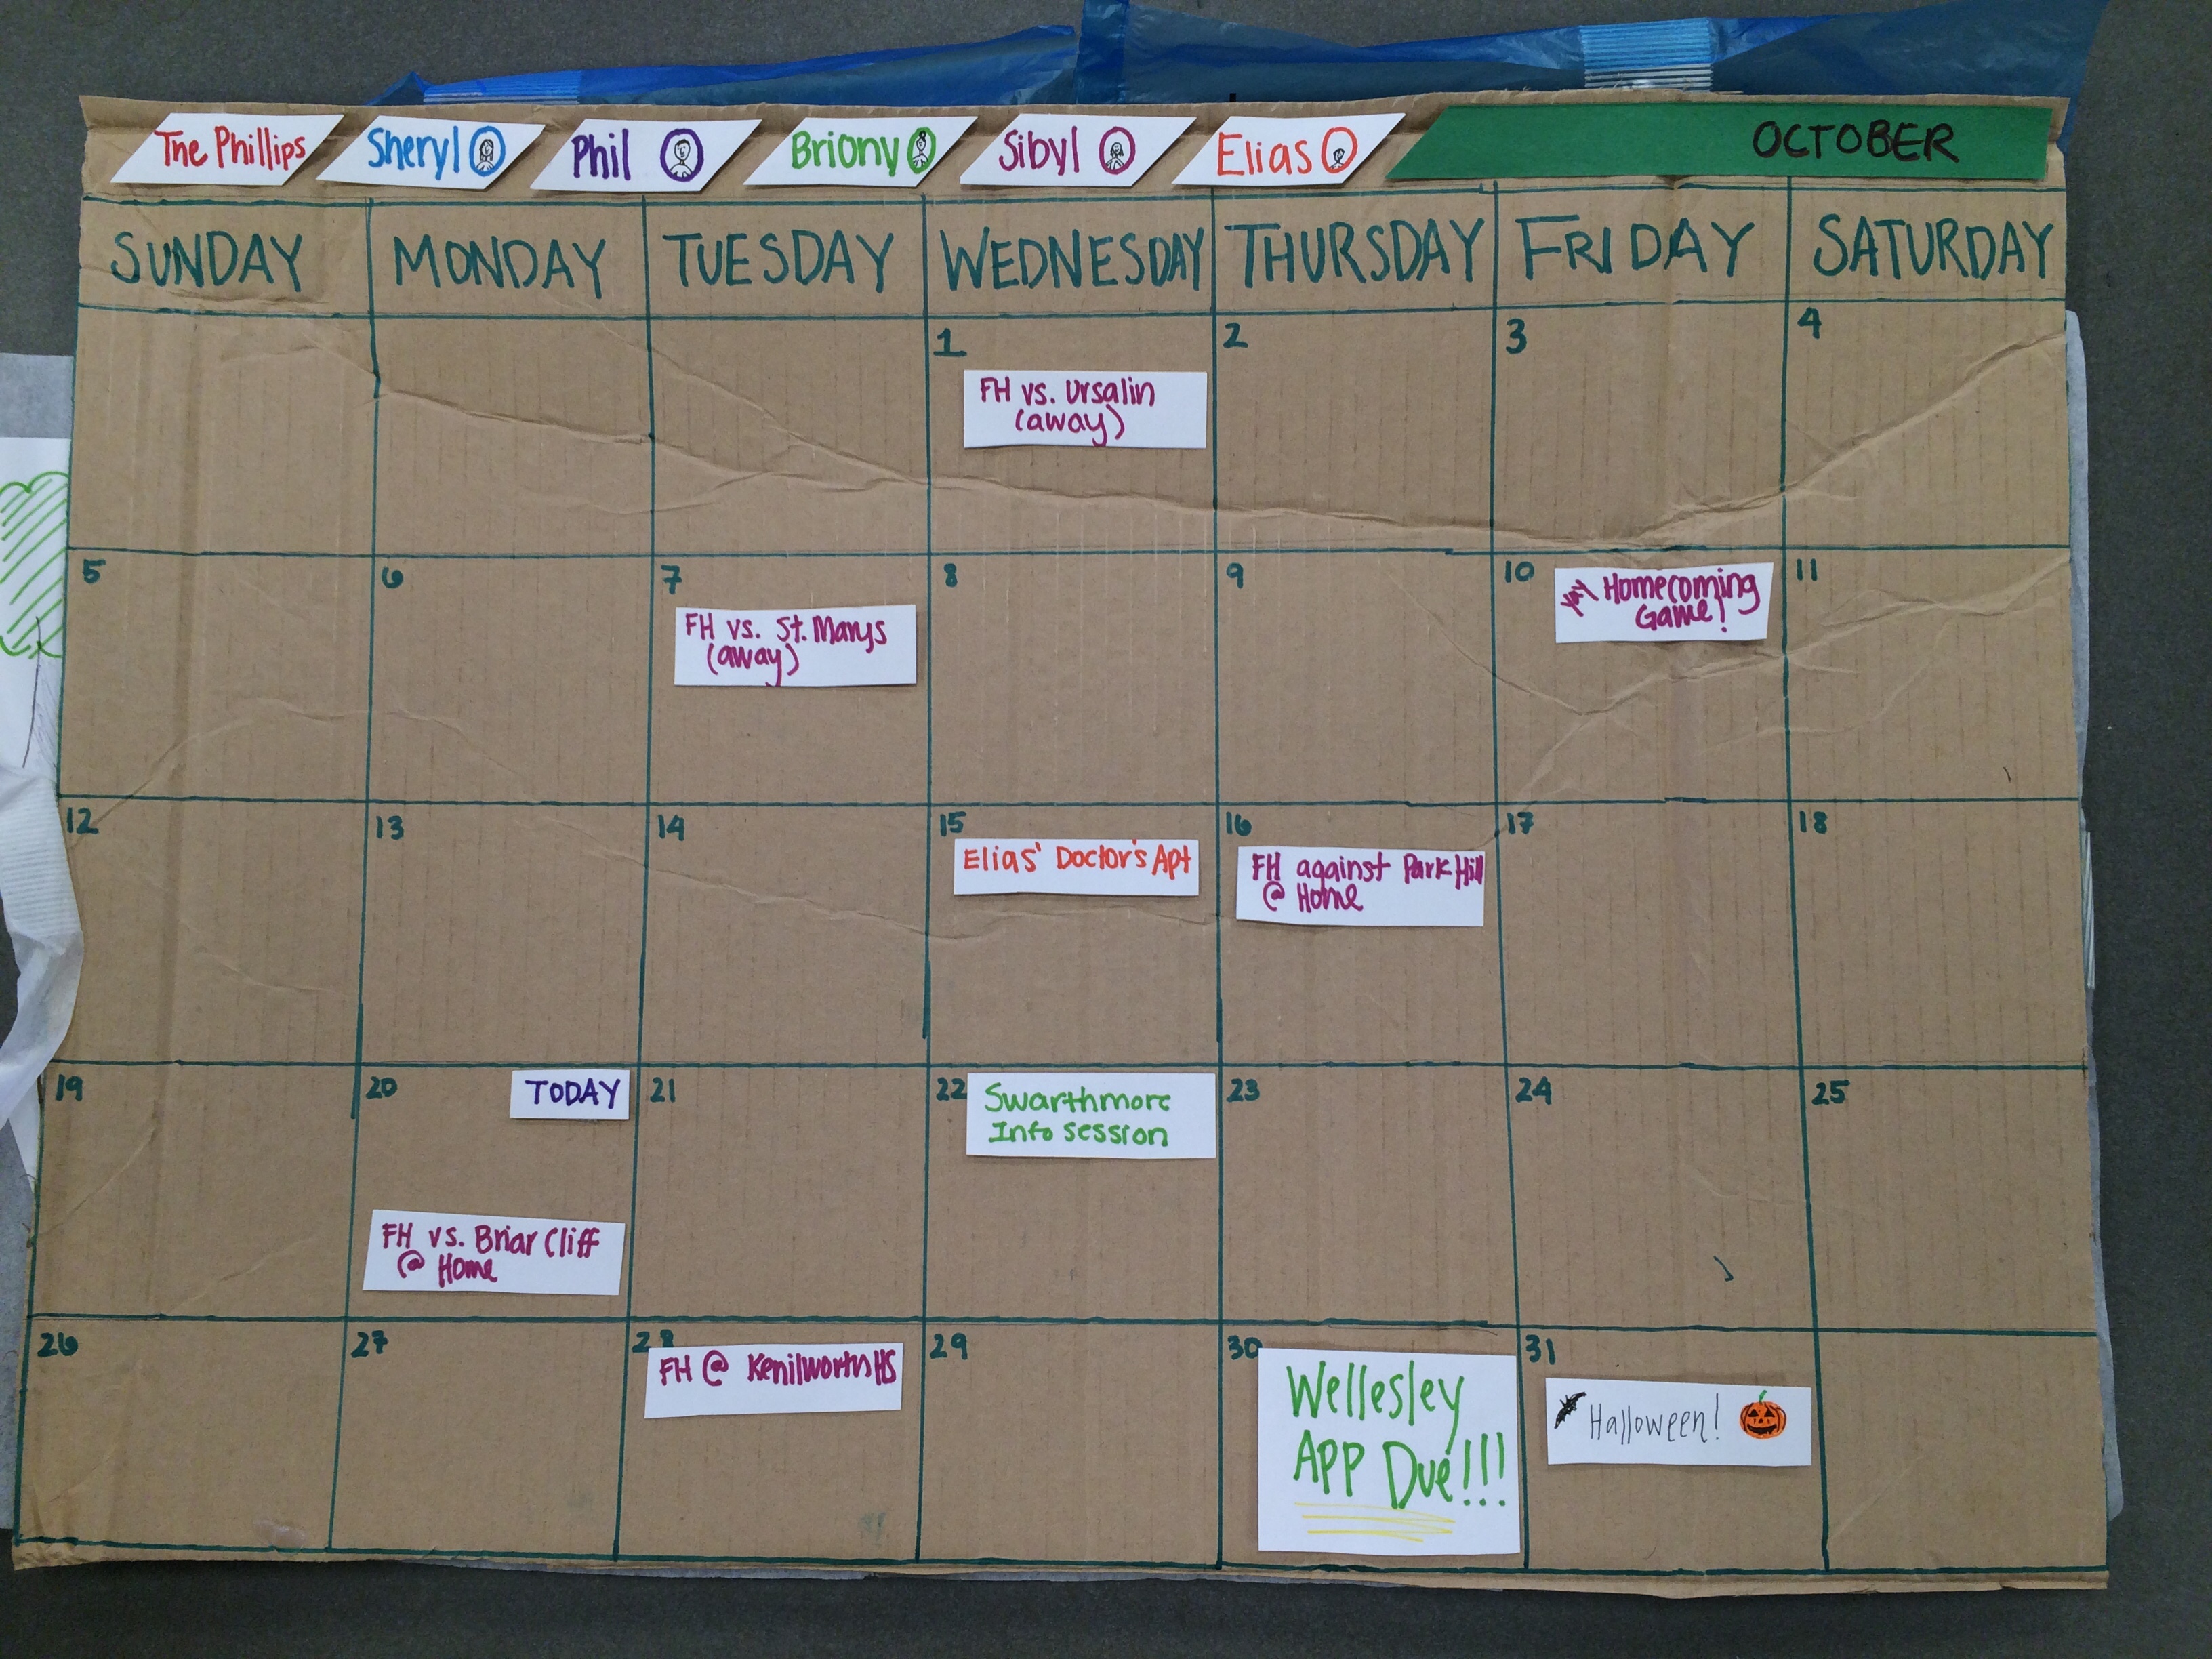 The Phillips
Sheryl
Phil
Briony
Sibyl
Elias
OCTOBER
SUNDAY
MONDAY
TUESDAY
WEDNESDAY
THURSDAY
FRIDAY
SATURDAY
1
FH vs. Ursalin
(away)
2
3
4
5
6
7
FH vs. St. Marys
(away)
8
9
10
Yay Homecoming
Game!
11
12
13
14
15
Elias' Doctor's Apt
16
FH against Park Hill
@ Home
17
18
19
20
TODAY
FH vs. Briar Cliff
@ Home
21
22
Swarthmore
Info session
23
24
25
26
27
28
FH @ Kenilworth HS
29
30
Wellesley
APP Due!!!
31
Halloween!